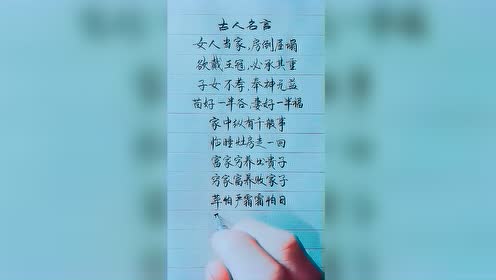 古人名言
女人当家,房倒屋塌
欲戴王冠,必承其重
子女不孝,奉神无益
苗好一半谷,妻好一半福
家中纵有千般事
临睡灶房走一回
富家穷养出贵子
穷家富养败家子
草怕严霜霜怕日